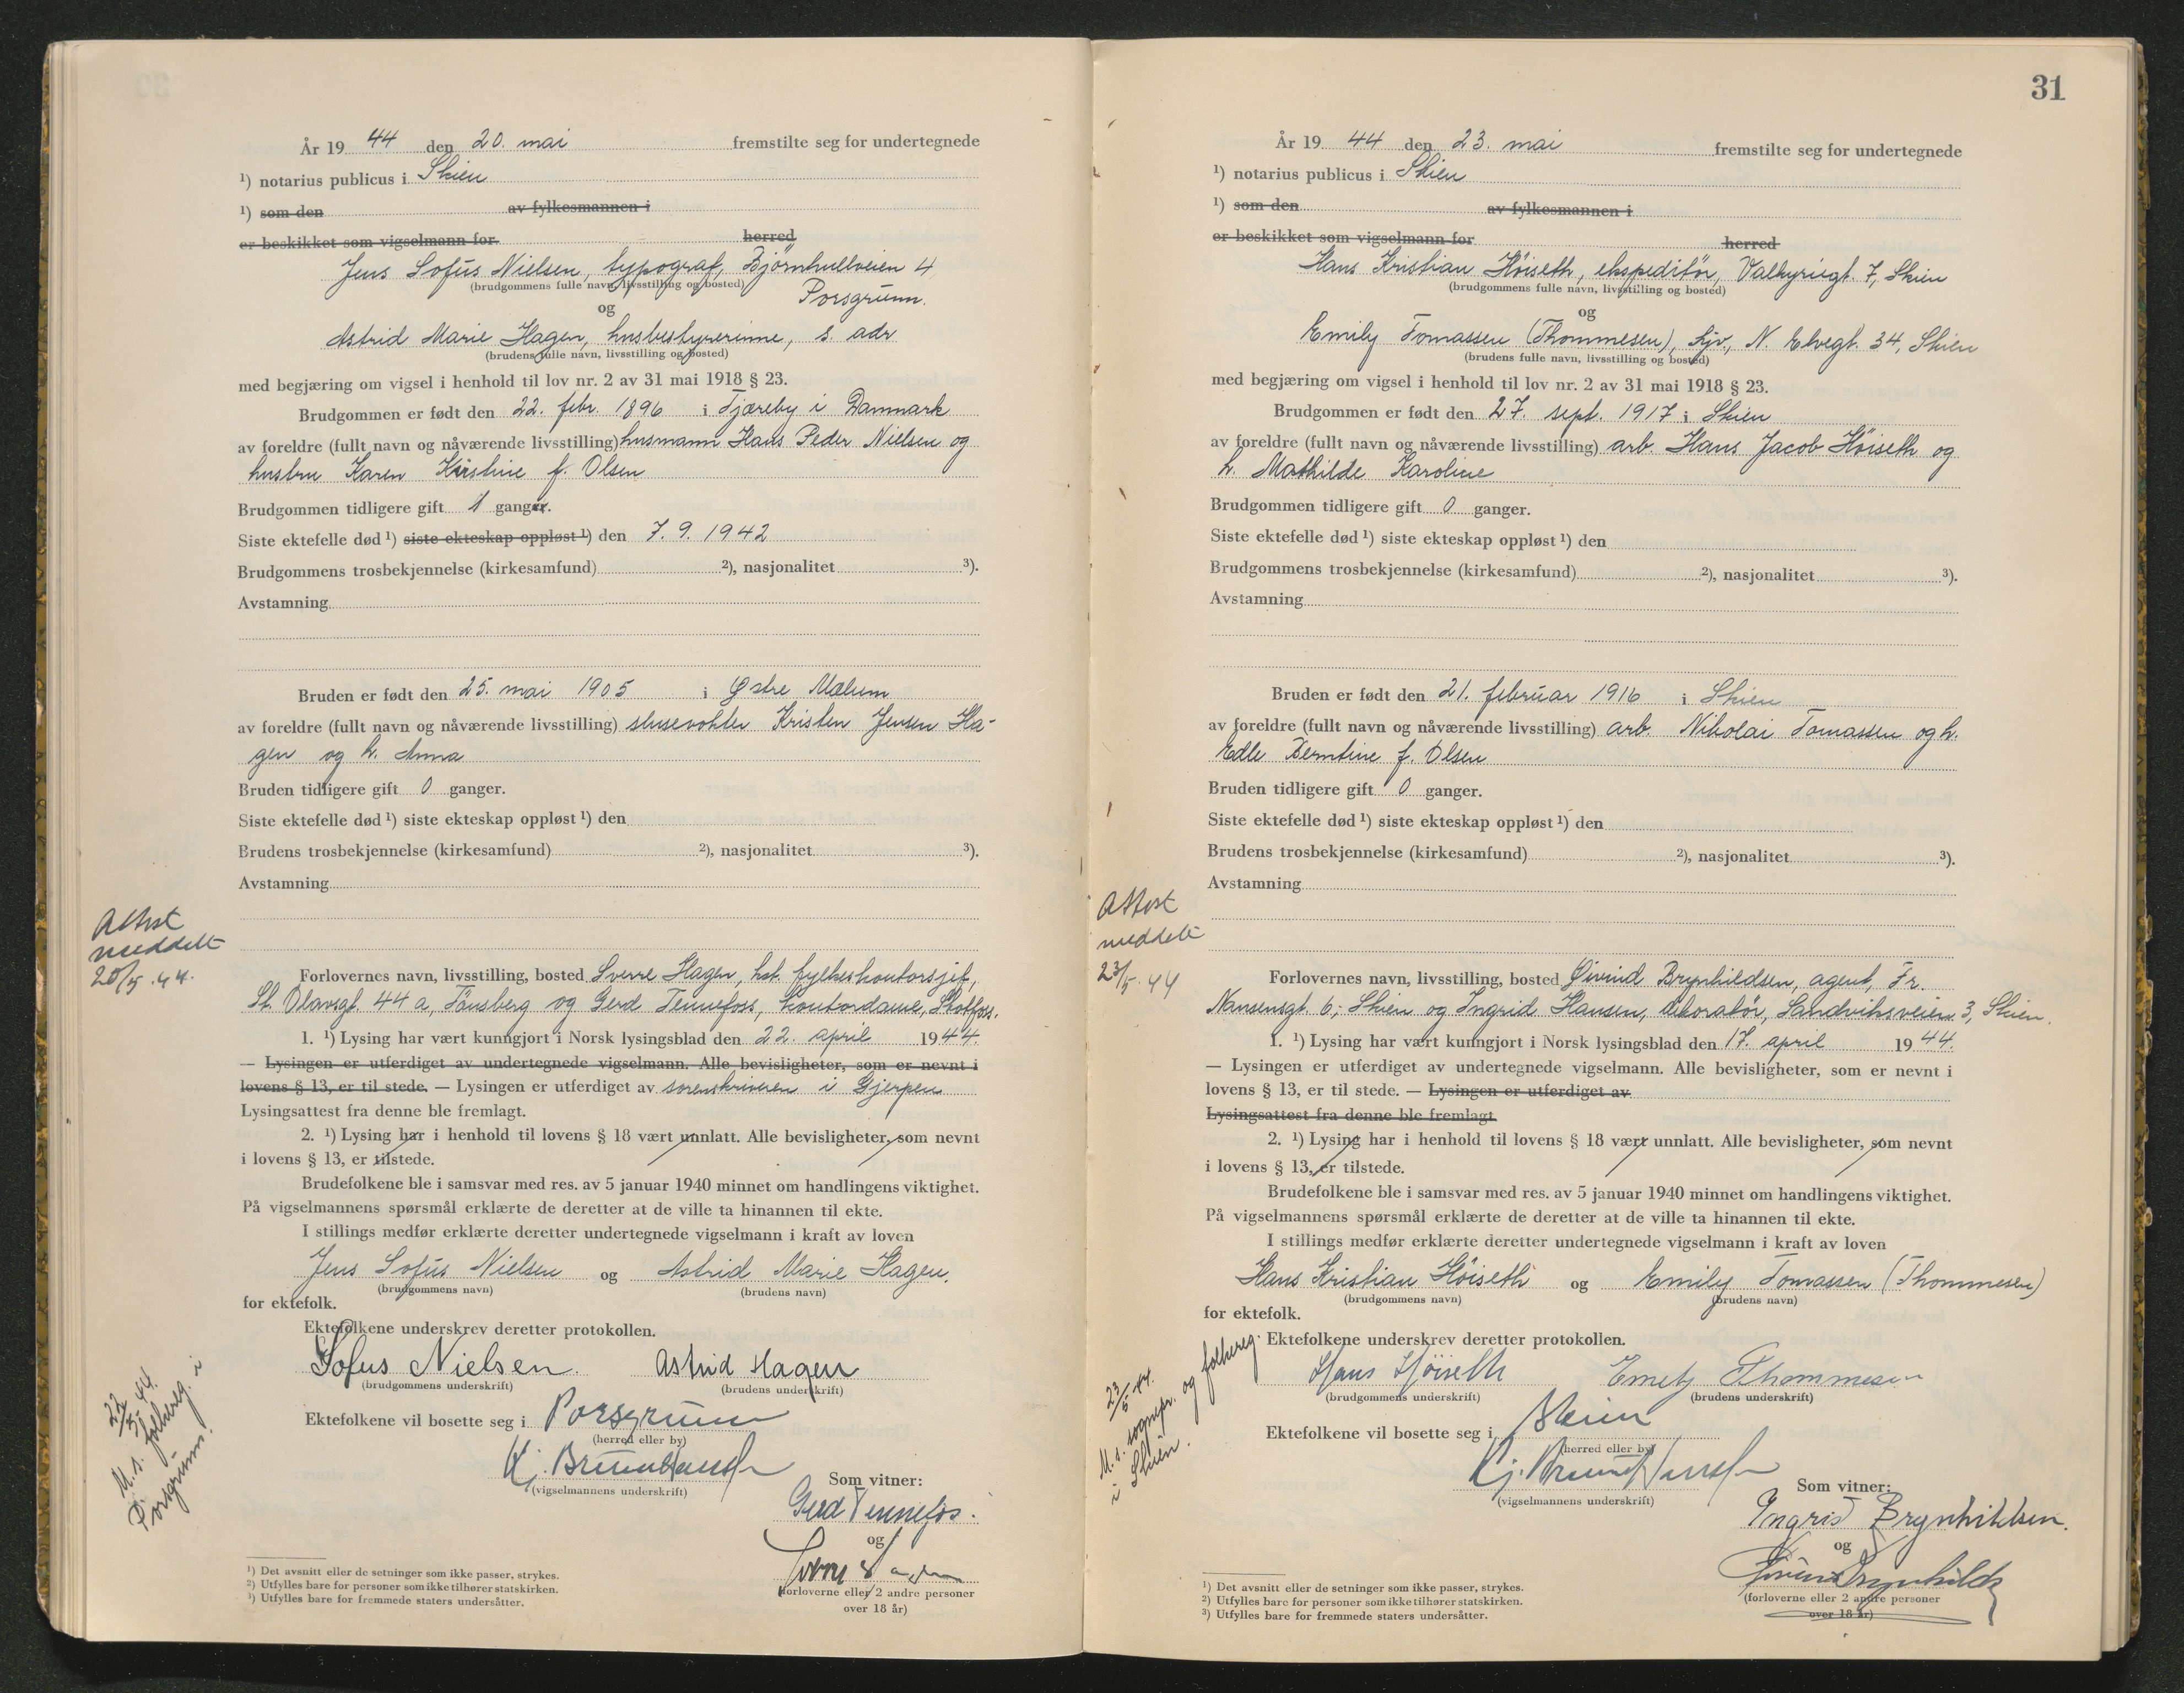 År 19 44 den 20. mai fremstilte seg for undertegnede
¹) notarius publicus i Skien
¹) som den av fylkesmannen i
er beskikket som vigselmann for herred
Jens Sofus Nielsen, typograf, Björnhullveien 4
(brudgommens fulle navn, livsstilling og bosted) Porsgrunn.
og
Astrid Marie Hagen, husbestyrerinne, s. adr
(brudens fulle navn, livsstilling og bosted)
med begjæring om vigsel i henhold til lov nr. 2 av 31 mai 1918 § 23.
Brudgommen er født den 22. febr. 1896 i Tjæreby i Danmark
av foreldre (fullt navn og nåværende livsstilling) husmann Hans Peder Nielsen og
hustru Karen Kirstine f. Olsen
Brudgommen tidligere gift 1 gang.
Siste ektefelle død ¹) siste ekteskap oppløst ¹) den 7. 9. 1942
Brudgommens trosbekjennelse (kirkesamfund) ²), nasjonalitet ³).
Avstamning
Bruden er født den 25. mai 1905 i Østre Mælum
av foreldre (fullt navn og nåværende livsstilling) slusevokter Kristen Jensen Ha-
gen og h. Anna
Bruden tidligere gift 0 ganger.
Siste ektefelle død ¹) siste ekteskap oppløst ¹) den
Brudens trosbekjennelse (kirkesamfund) ²), nasjonalitet ³).
Avstamning
Attest
meddelt
20/5.44.
Forlovernes navn, livsstilling, bosted Sverre Hagen, hst. fylkeskontorsjef,
St. Olavsgt. 44 a, Tönsberg og Gerd Tennefoss, kontordame, Skotfoss.
1. ¹) Lysing har vært kunngjort i Norsk lysingsblad den 22. april 1944.
— Lysingen er utferdiget av undertegnede vigselmann. Alle bevisligheter, som er nevnt i
lovens § 13, er til stede. — Lysingen er utferdiget av sorenskriveren i Gjerpen
Lysingsattest fra denne ble fremlagt.
2. ¹) Lysing har i henhold til lovens § 18 vært unnlatt. Alle bevisligheter, som nevnt
i lovens § 13, er tilstede.
Brudefolkene ble i samsvar med res. av 5 januar 1940 minnet om handlingens viktighet.
På vigselmannens spørsmål erklærte de deretter at de ville ta hinannen til ekte.
I stillings medfør erklærte deretter undertegnede vigselmann i kraft av loven
Jens Sofus Nielsen og Astrid Marie Hagen.
(brudgommens navn) (brudens navn)
for ektefolk.
Ektefolkene underskrev deretter protokollen.
Sofus Nielsen. Astrid Hagen
(brudgommens underskrift) (brudens underskrift)
Ektefolkene vil bosette seg i Porsgrunn
(herred eller by)
(vigselmannens underskrift)
22/5-44.
M. s. folkereg. i
Porsgrunn.
Som vitner:
Gerd Tennefos.
og
(forloverne eller 2 andre personer
over 18 år)
¹) Det avsnitt eller de setninger som ikke passer, strykes.
²) Utfylles bare for personer som ikke tilhører statskirken.
³) Utfylles bare for fremmede staters undersåtter.
31
År 19 44 den 23. mai fremstilte seg for undertegnede
¹) notarius publicus i Skien
¹) som den av fylkesmannen i
er beskikket som vigselmann for herred
Hans Kristian Höiseth, ekspeditör, Valkyriegt. 7, Skien
(brudgommens fulle navn, livsstilling og bosted)
og
Emily Tomassen (Thommesen), hjv., N. Elvegt. 34, Skien
(brudens fulle navn, livsstilling og bosted)
med begjæring om vigsel i henhold til lov nr. 2 av 31 mai 1918 § 23.
Brudgommen er født den 27. sept. 1917 i Skien
av foreldre (fullt navn og nåværende livsstilling) arb. Hans Jacob Höiseth og
h. Mathilde Karoline
Brudgommen tidligere gift 0 ganger.
Siste ektefelle død ¹) siste ekteskap oppløst ¹) den
Brudgommens trosbekjennelse (kirkesamfund) ²), nasjonalitet ³).
Avstamning
Bruden er født den 21. februar 1916 i Skien
av foreldre (fullt navn og nåværende livsstilling) arb. Nikolai Tomassen og h.
Edle Berntine f. Olsen
Bruden tidligere gift 0 ganger.
Siste ektefelle død ¹) siste ekteskap oppløst ¹) den
Brudens trosbekjennelse (kirkesamfund) ²), nasjonalitet ³).
Avstamning
Attest
meddelt
23/5.44
Forlovernes navn, livsstilling, bosted Öivind Brynhildsen, agent, Fr.
Nansensgt. 6, Skien og Ingrid Hansen, dekoratör, Landvikveien 3, Skien.
1. ¹) Lysing har vært kunngjort i Norsk lysingsblad den 17. april 1944.
— Lysingen er utferdiget av undertegnede vigselmann. Alle bevisligheter, som er nevnt i
lovens § 13, er til stede. — Lysingen er utferdiget av
Lysingsattest fra denne ble fremlagt.
2. ¹) Lysing har i henhold til lovens § 18 vært unnlatt. Alle bevisligheter, som nevnt
i lovens § 13, er tilstede.
Brudefolkene ble i samsvar med res. av 5 januar 1940 minnet om handlingens viktighet.
På vigselmannens spørsmål erklærte de deretter at de ville ta hinannen til ekte.
I stillings medfør erklærte deretter undertegnede vigselmann i kraft av loven
Hans Kristian Höiseth og Emily Tomassen (Thommesen)
(brudgommens navn) (brudens navn)
for ektefolk.
Ektefolkene underskrev deretter protokollen.
Hans Höiseth Emely Thommesen
(brudgommens underskrift) (brudens underskrift)
Ektefolkene vil bosette seg i Skien
(herred eller by)
(vigselmannens underskrift)
23/5.44.
M. s. sognepr. og folkereg.
i Skien.
Som vitner:
Ingrid Brynhildsen.
og
(forloverne eller 2 andre personer
over 18 år)
¹) Det avsnitt eller de setninger som ikke passer, strykes.
²) Utfylles bare for personer som ikke tilhører statskirken.
³) Utfylles bare for fremmede staters undersåtter.